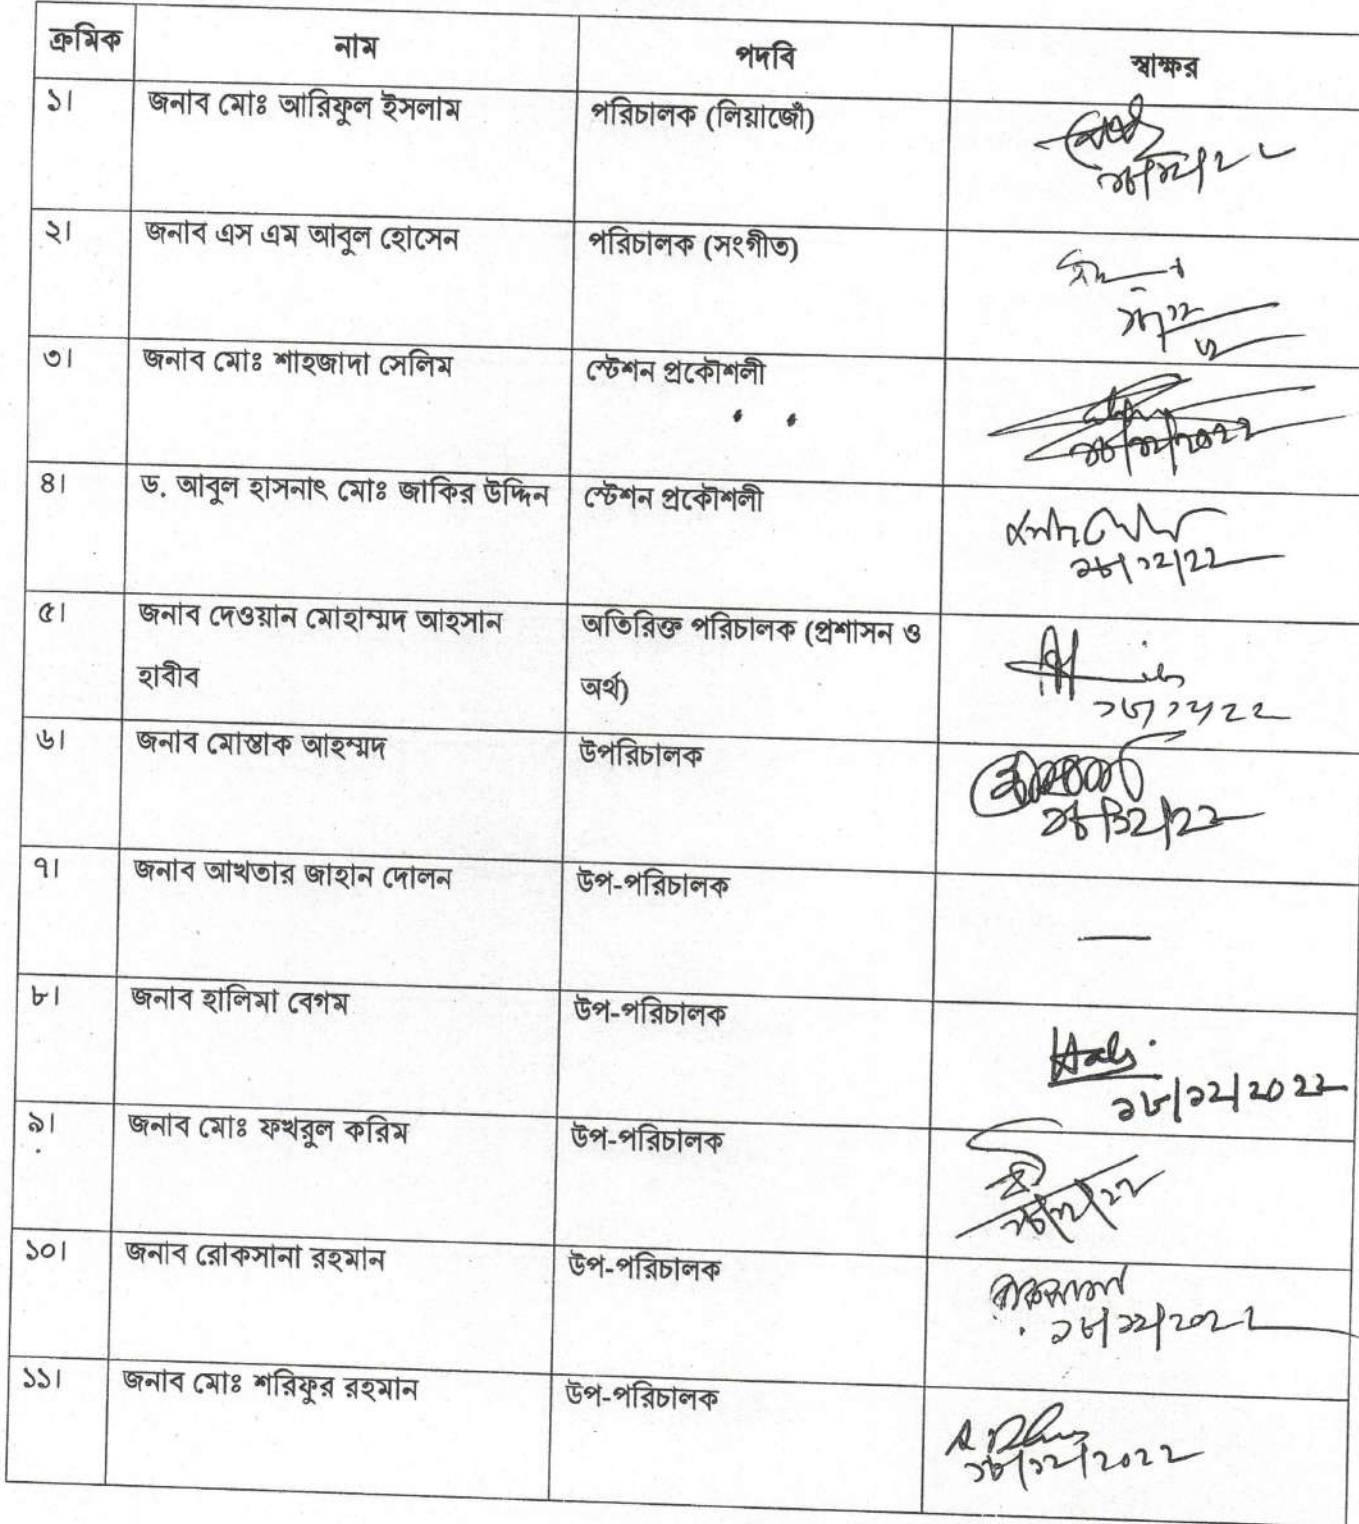 ক্রমিক নাম পদবি স্বাক্ষর
১। জনাব মোঃ আরিফুল ইসলাম পরিচালক (লিয়াজোঁ)
২। জনাব এস এম আবুল হোসেন পরিচালক (সংগীত)
৩। জনাব মোঃ শাহজাদা সেলিম স্টেশন প্রকৌশলী
৪। ড. আবুল হাসনাৎ মোঃ জাকির উদ্দিন স্টেশন প্রকৌশলী
২৮/১২/২২
৫। জনাব দেওয়ান মোহাম্মদ আহসান অতিরিক্ত পরিচালক (প্রশাসন ও
হাবীব অর্থ)
৬। জনাব মোস্তাক আহম্মদ উপরিচালক
২৮/১২/২২
৭। জনাব আখতার জাহান দোলন উপ-পরিচালক
—
৮। জনাব হালিমা বেগম উপ-পরিচালক
২৮/১২/২০২২
৯। জনাব মোঃ ফখরুল করিম উপ-পরিচালক
১০। জনাব রোকসানা রহমান উপ-পরিচালক
২৮/১২/২০২২
১১। জনাব মোঃ শরিফুর রহমান উপ-পরিচালক
২৮/১২/২০২২